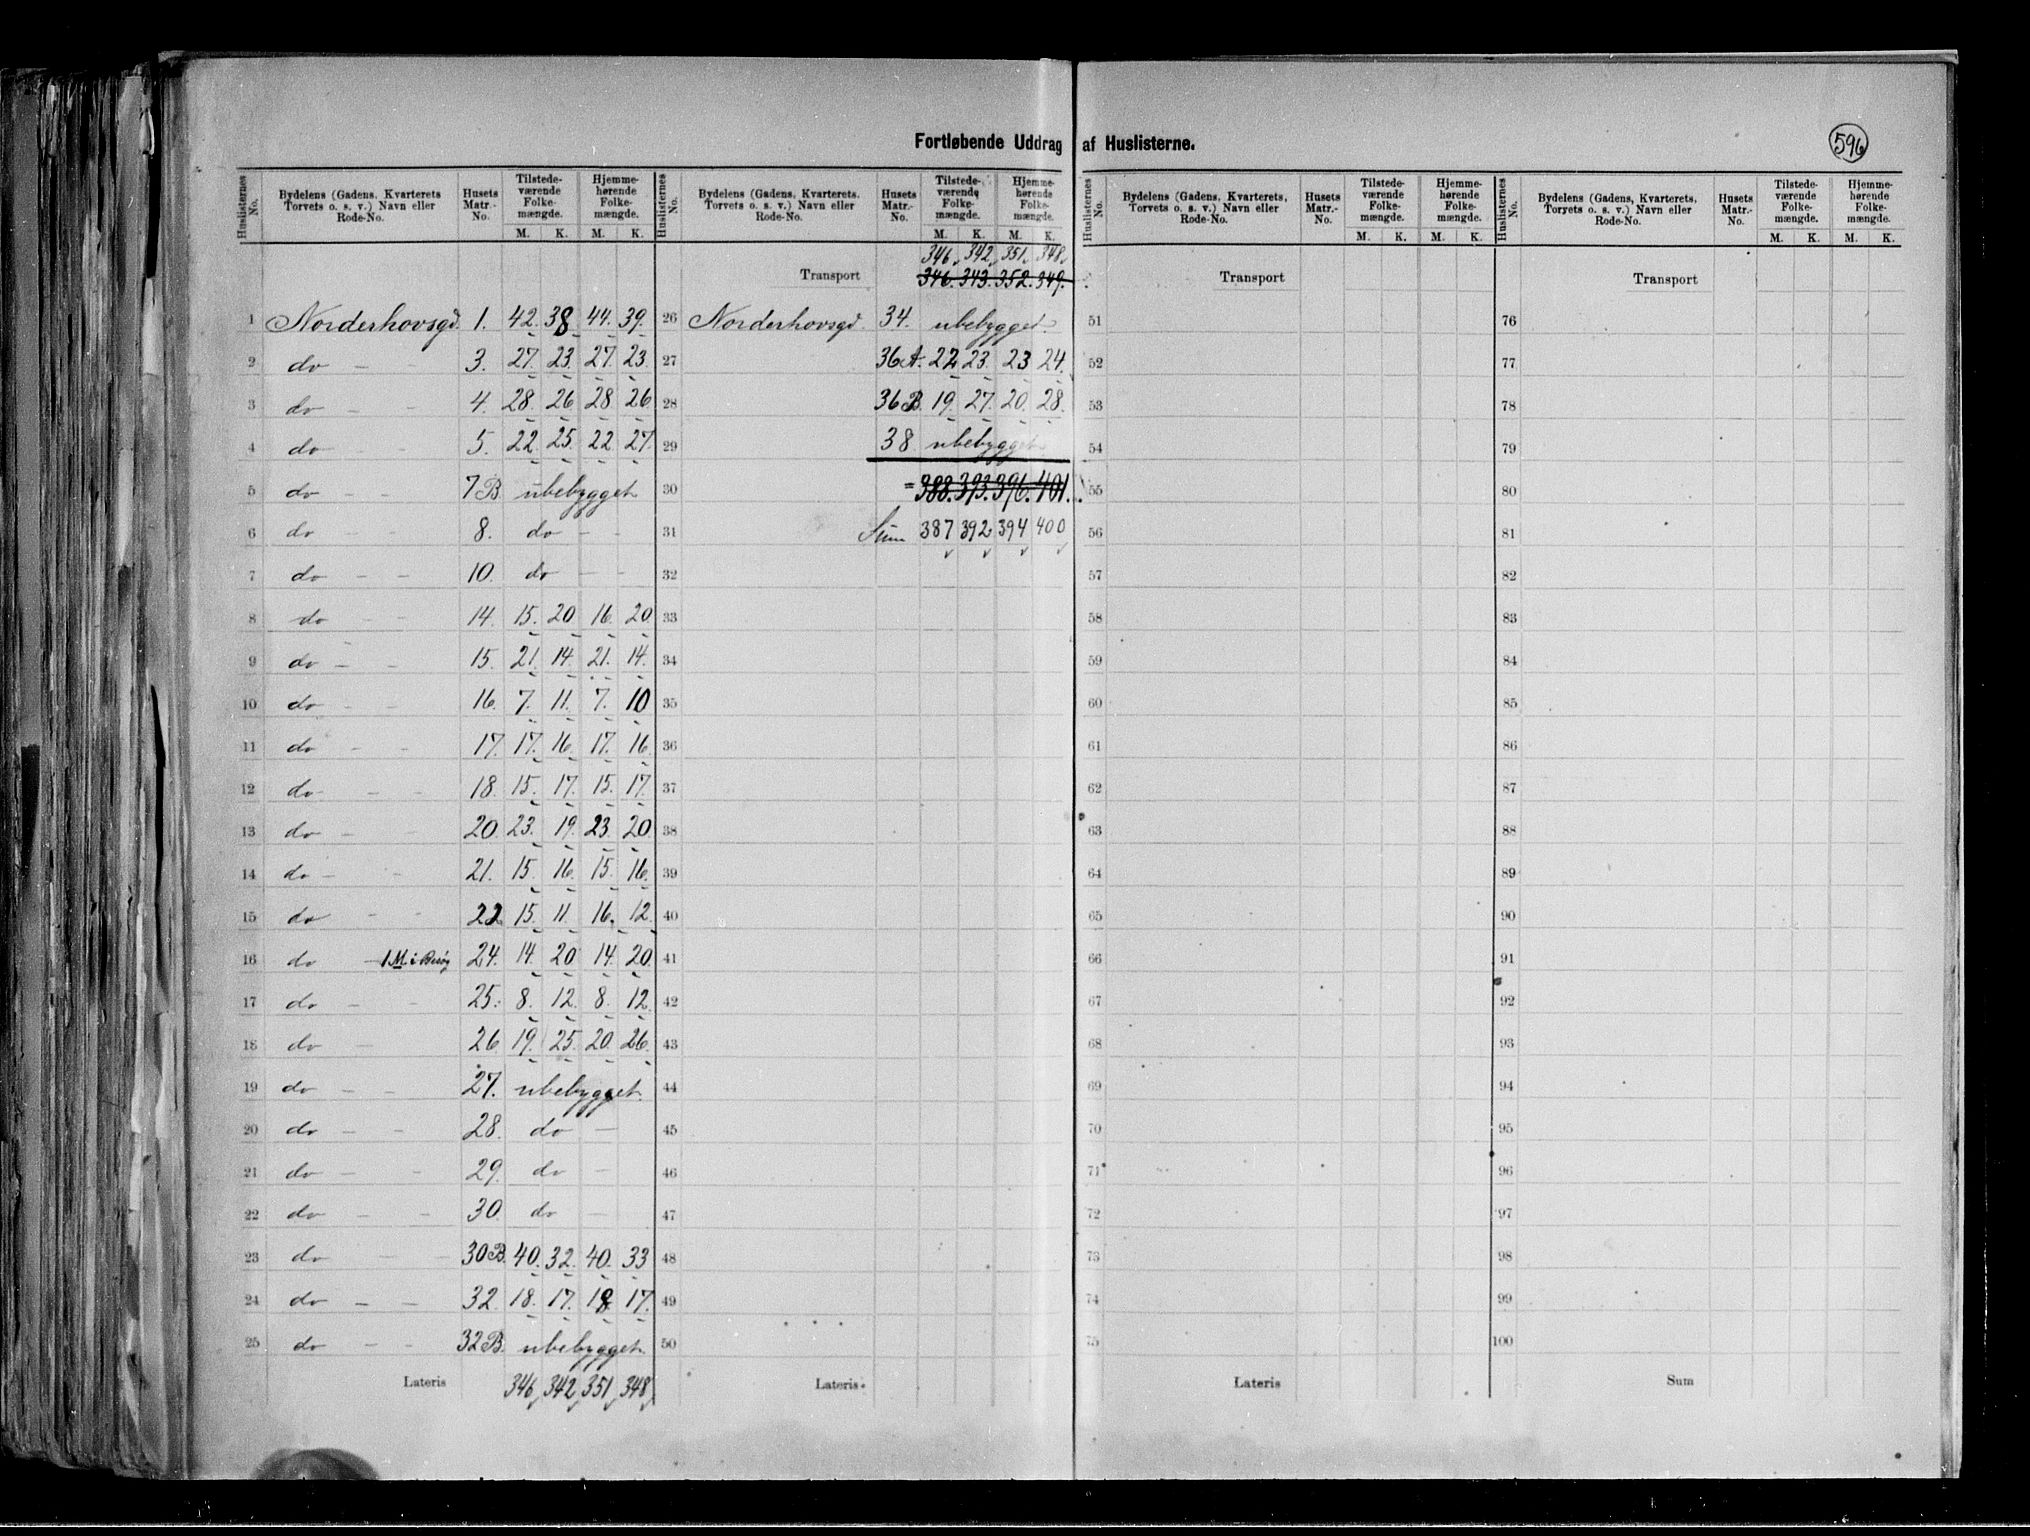 Fortløbende Uddrag af Huslisterne.
596
Huslisternes No. | Bydelens (Gadens, Kvarterets Torvets o. s. v.) Navn eller Rode-No. | Husets Matr.-No. | Tilstede-værende Folke-mængde. M. K. | Hjemme-hørende Folke-mængde. M. K.
1 Norderhovsgd. 1. 42. 38 44. 39.
2 do - - 3. 27. 23. 27. 23.
3 do - - 4. 28. 26 28. 26
4 do - - 5. 22. 25. 22 27.
5 do - - 7B. ubebygget
6 do - - 8. do - -
7 do - - 10. do - -
8 do - - 14. 15. 20 16. 20
9 do - - 15. 21. 14. 21. 14.
10 do - - 16. 7. 11. 7. 10
11 do - - 17. 17. 16. 17. 16.
12 do - - 18. 15. 17. 15. 17.
13 do - - 20. 23. 19. 23. 20
14 do - - 21. 15. 16. 15. 16.
15 do - - 22 15. 11. 16. 12.
16 do - 1 M i Besøg 24. 14. 20 14. 20
17 do - - 25. 8. 12. 8. 12
18 do - 26 19. 25. 20. 26.
19 do - - 27. ubebygget.
20 do - - 28. do -
21 do - - 29. do -
22 do - - 30. do -
23 do - - 30B. 40. 32. 40. 33
24 do - - 32. 18. 17. 18. 17.
25 do - - 32B. ubebygget
Lateris 346 342 351 348
Huslisternes No. | Bydelens (Gadens, Kvarterets. Torvets o. s. v.) Navn eller Rode-No. | Husets Matr.-No. | Tilstede-værende Folke-mængde. M. K. | Hjemme-hørende Folke-mængde. M. K.
346 342 351 348
Transport 346. 343. 352. 349.
26 Norderhovsgd. 34. ubebygget
27 36A. 22 23. 23 24.
28 36B. 19. 27. 20. 28.
29 38 ubebygget
30 = 388. 393. 396. 401.
31 Sum 387 392 394 400
32
33
34
35
36
37
38
39
40
41
42
43
44
45
46
47
48
49
50
Lateris.
Huslisternes No. | Bydelens (Gadens, Kvarterets, Torvets o. s. v.) Navn eller Rode-No. | Husets Matr.-No. | Tilstede-værende Folke-mængde. M. K. | Hjemme-hørende Folke-mængde. M. K.
Transport
51
52
53
54
55
56
57
58
59
60
61
62
63
64
65
66
67
68
69
70
71
72
73
74
75
Lateris
Huslisternes No. | Bydelens (Gadens, Kvarterets, Torvets o. s. v.) Navn eller Rode-No. | Husets Matr.-No. | Tilstede-værende Folke-mængde. M. K. | Hjemme-hørende Folke-mængde. M. K.
Transport
76
77
78
79
80
81
82
83
84
85
86
87
88
89
90
91
92
93
94
95
96
97
98
99
100
Sum